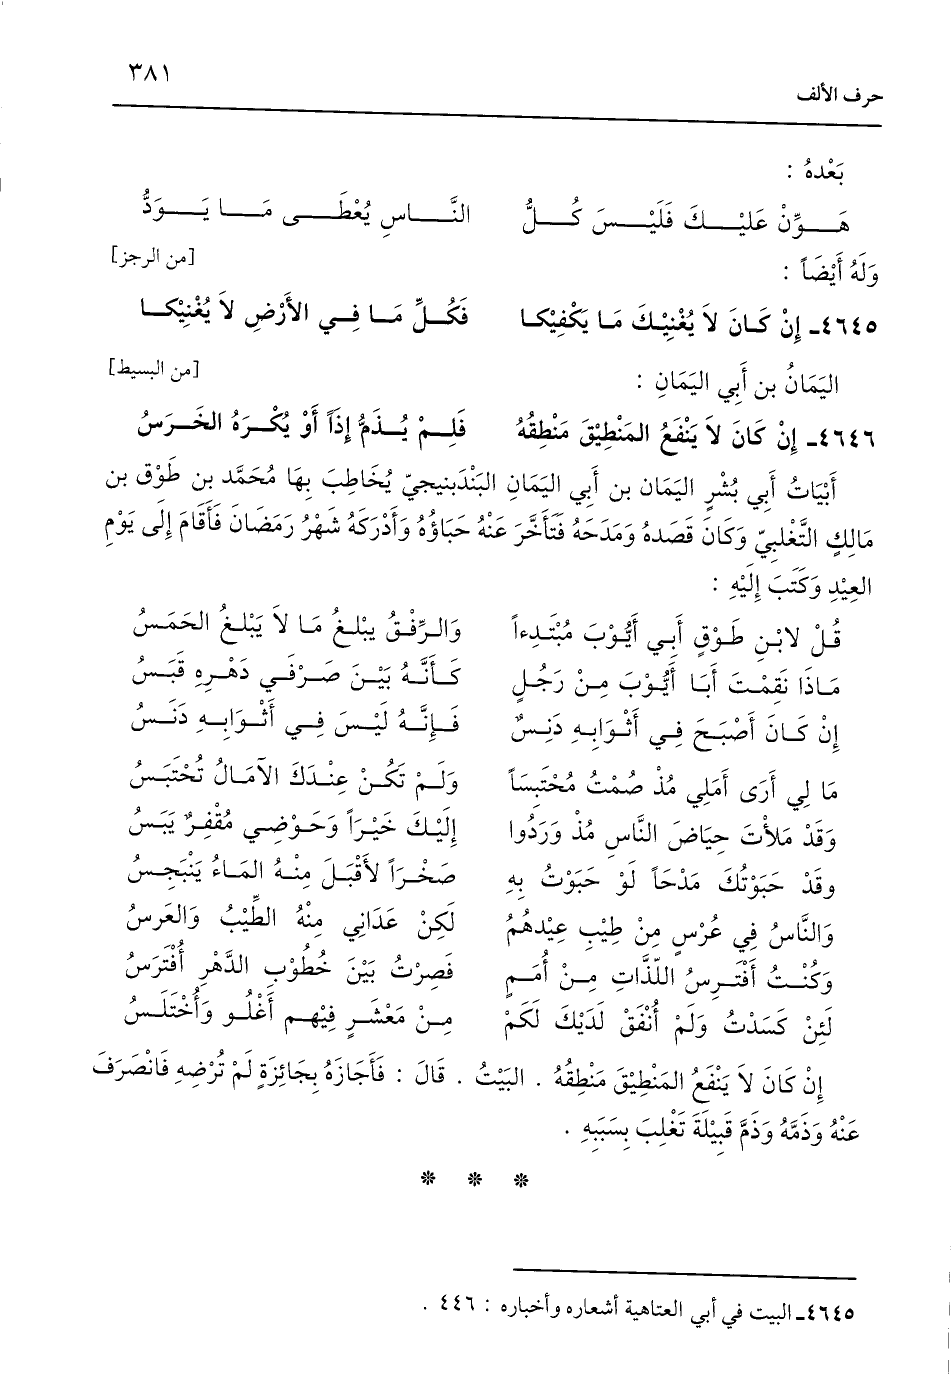 ٣٨١
حرف الألف
بَعْدهُ :
هَـــوِّنْ عَلَيْـــكَ فَلَيْـــسَ كُـــلُّ النَّـــاسِ يُعْطَـــى مَـــا يَـــوَدُّ
وَلَهُ أَيْضَاً : [من الرجز]
٤٦٤٥ـ إِنْ كَـانَ لاَ يُغْنِيْـكَ مَـا يَكْفِيْكـا فَكُـلُّ مَـا فِـي الأَرْضِ لاَ يُغْنِيْكـا
اليَمَانُ بن أَبِي اليَمَانِ : [من البسيط]
٤٦٤٦ـ إِنْ كَانَ لاَ يَنْفَعُ المَنْطِيْقَ مَنْطِقُهُ فَلِمْ يُـذَمُّ إِذَاً أَوْ يُكْـرَهُ الخَـرَسُ
أَبْيَاتُ أَبِي بُشْرِ اليَمَان بن أَبِي اليَمَانِ البَنْدَبِنيجيّ يُخَاطِبُ بِهَا مُحَمَّد بن طَوْق بن
مَالِكِ التَّغْلَبِيّ وَكَانَ قَصَدهُ وَمَدحَهُ فَتَأَخَّرَ عَنْهُ حَبَاؤُهُ وَأَدْرَكَهُ شَهْرُ رَمَضَان فَأَقَامَ إِلَى يَوْمِ
العِيْدِ وَكَتَبَ إِلَيْهِ :
قُـلْ لابْـنِ طَـوْقٍ أَبِـي أَيُّـوْبَ مُبْتَـدِءاً وَالـرِّفْقُ يبْلـغُ مَـا لاَ يَبْلـغُ الحَمَـسُ
مَـاذَا نَقِمْـتَ أبَـا أَيُّـوْبَ مِـنْ رَجُـلٍ كَـأَنَّـهُ بَيْـنَ صَـرْفَـي دَهْـرِهِ قَبَـسُ
إِنْ كَـانَ أَصْبَـحَ فِـي أَثْـوَابِـهِ دَنِـسٌ فَـإِنَّـهُ لَيْـسَ فِـي أَثْـوَابِـهِ دَنَـسُ
مَا لِي أَرَى أَمَلِي مُذْ صُمْتُ مُحْتَبَسَاً وَلَـمْ تَكُـنْ عِنْـدَكَ الآمَـالُ تُحْتَبَـسُ
وَقَدْ مَلأْتَ حِيَاضَ النَّاسِ مُذْ وَرَدُوا إِلَيْكَ خَيْـرَاً وَحَـوْضِـي مُقْفِـرٌ يَبَـسُ
وقَدْ حَبَوْتُكَ مَدْحَاً لَوْ حَبَوْتُ بِهِ صَخْـرَاً لأَقْبَـلَ مِنْـهُ المَـاءُ يَنْبَجِـسُ
وَالنَّاسُ فِي عُرْسٍ مِنْ طِيْبِ عِيْدهُمُ لَكِنْ عَدَانِي مِنْهُ الطِّيْبُ وَالعَرسُ
وَكُنْـتُ أَفْتَـرِسُ اللَّذَّاتِ مِـنْ أُمَـمٍ فَصِرْتُ بَيْنَ خُطُوْبِ الدَّهْرِ أُفْتَرَسُ
لَئِنْ كَسَدْتُ وَلَمْ أُنْفَقْ لَدَيْكَ لَكَمْ مِـنْ مَعْشَـرٍ فِيْهِـمِ أَغْلُـو وَأُخْتَلَـسُ
إِنْ كَانَ لاَ يَنْفَعُ المَنْطِيْقَ مَنْطِقُهُ . البَيْتُ . قَالَ : فَأَجَازَهُ بِجَائِزَةٍ لَمْ تُرْضِهِ فَانْصَرَفَ
عَنْهُ وَذمَّهُ وَذمَّ قَبِيْلَةَ تَغْلِبَ بِسَبَبِهِ .
* * *
٤٦٤٥ـ البيت في أبي العتاهية أشعاره وأخباره : ٤٤٦ .